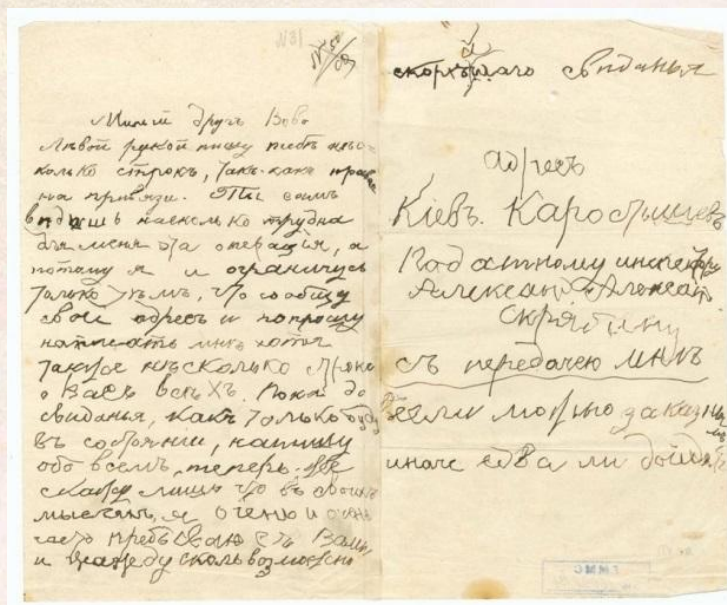 Милый другъ Вова
Лѣвой рукой пишу тебѣ нѣс-
колько строкъ, такъ какъ правая
на привязи. Ты самъ
видишь насколько трудна
для меня эта операция, а
потому я и ограничусь
только тѣмъ, что сообщу
свой адресъ и попрошу
написать мнѣ хотя
такую нѣсколько строкъ
о Васъ всѣхъ. Пока до
свиданья, какъ только буду
въ состоянии, напишу
обо всемъ, теперь же
скажу лишь что въ своихъ
мысляхъ я очень и очень
часто пребываю съ Вами
и жажду сколь возможно
скорѣйшаго свиданья
адресъ
Кіевъ. Каростышевъ
Податному инспектору
Александ. Александ.
Скрябину
съ передачею мнѣ
если можно заказнымъ
иначе едва ли дойдетъ